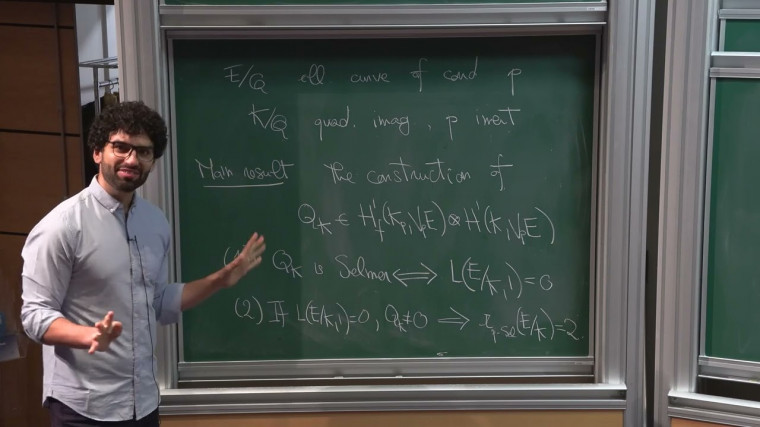 E/Q ell curve of cond p
K/Q quad. imag, p inert
Main result The construction of
Q_K ∈ H¹_f(K_p, V_pE) ⊗ H¹(K, V_pE)
(1) Q_K is Selmer ⟺ L(E/K,1)=0
(2) If L(E/K,1)=0, Q_K≠0 ⟹ r_{p-Sel}(E/K)=2.